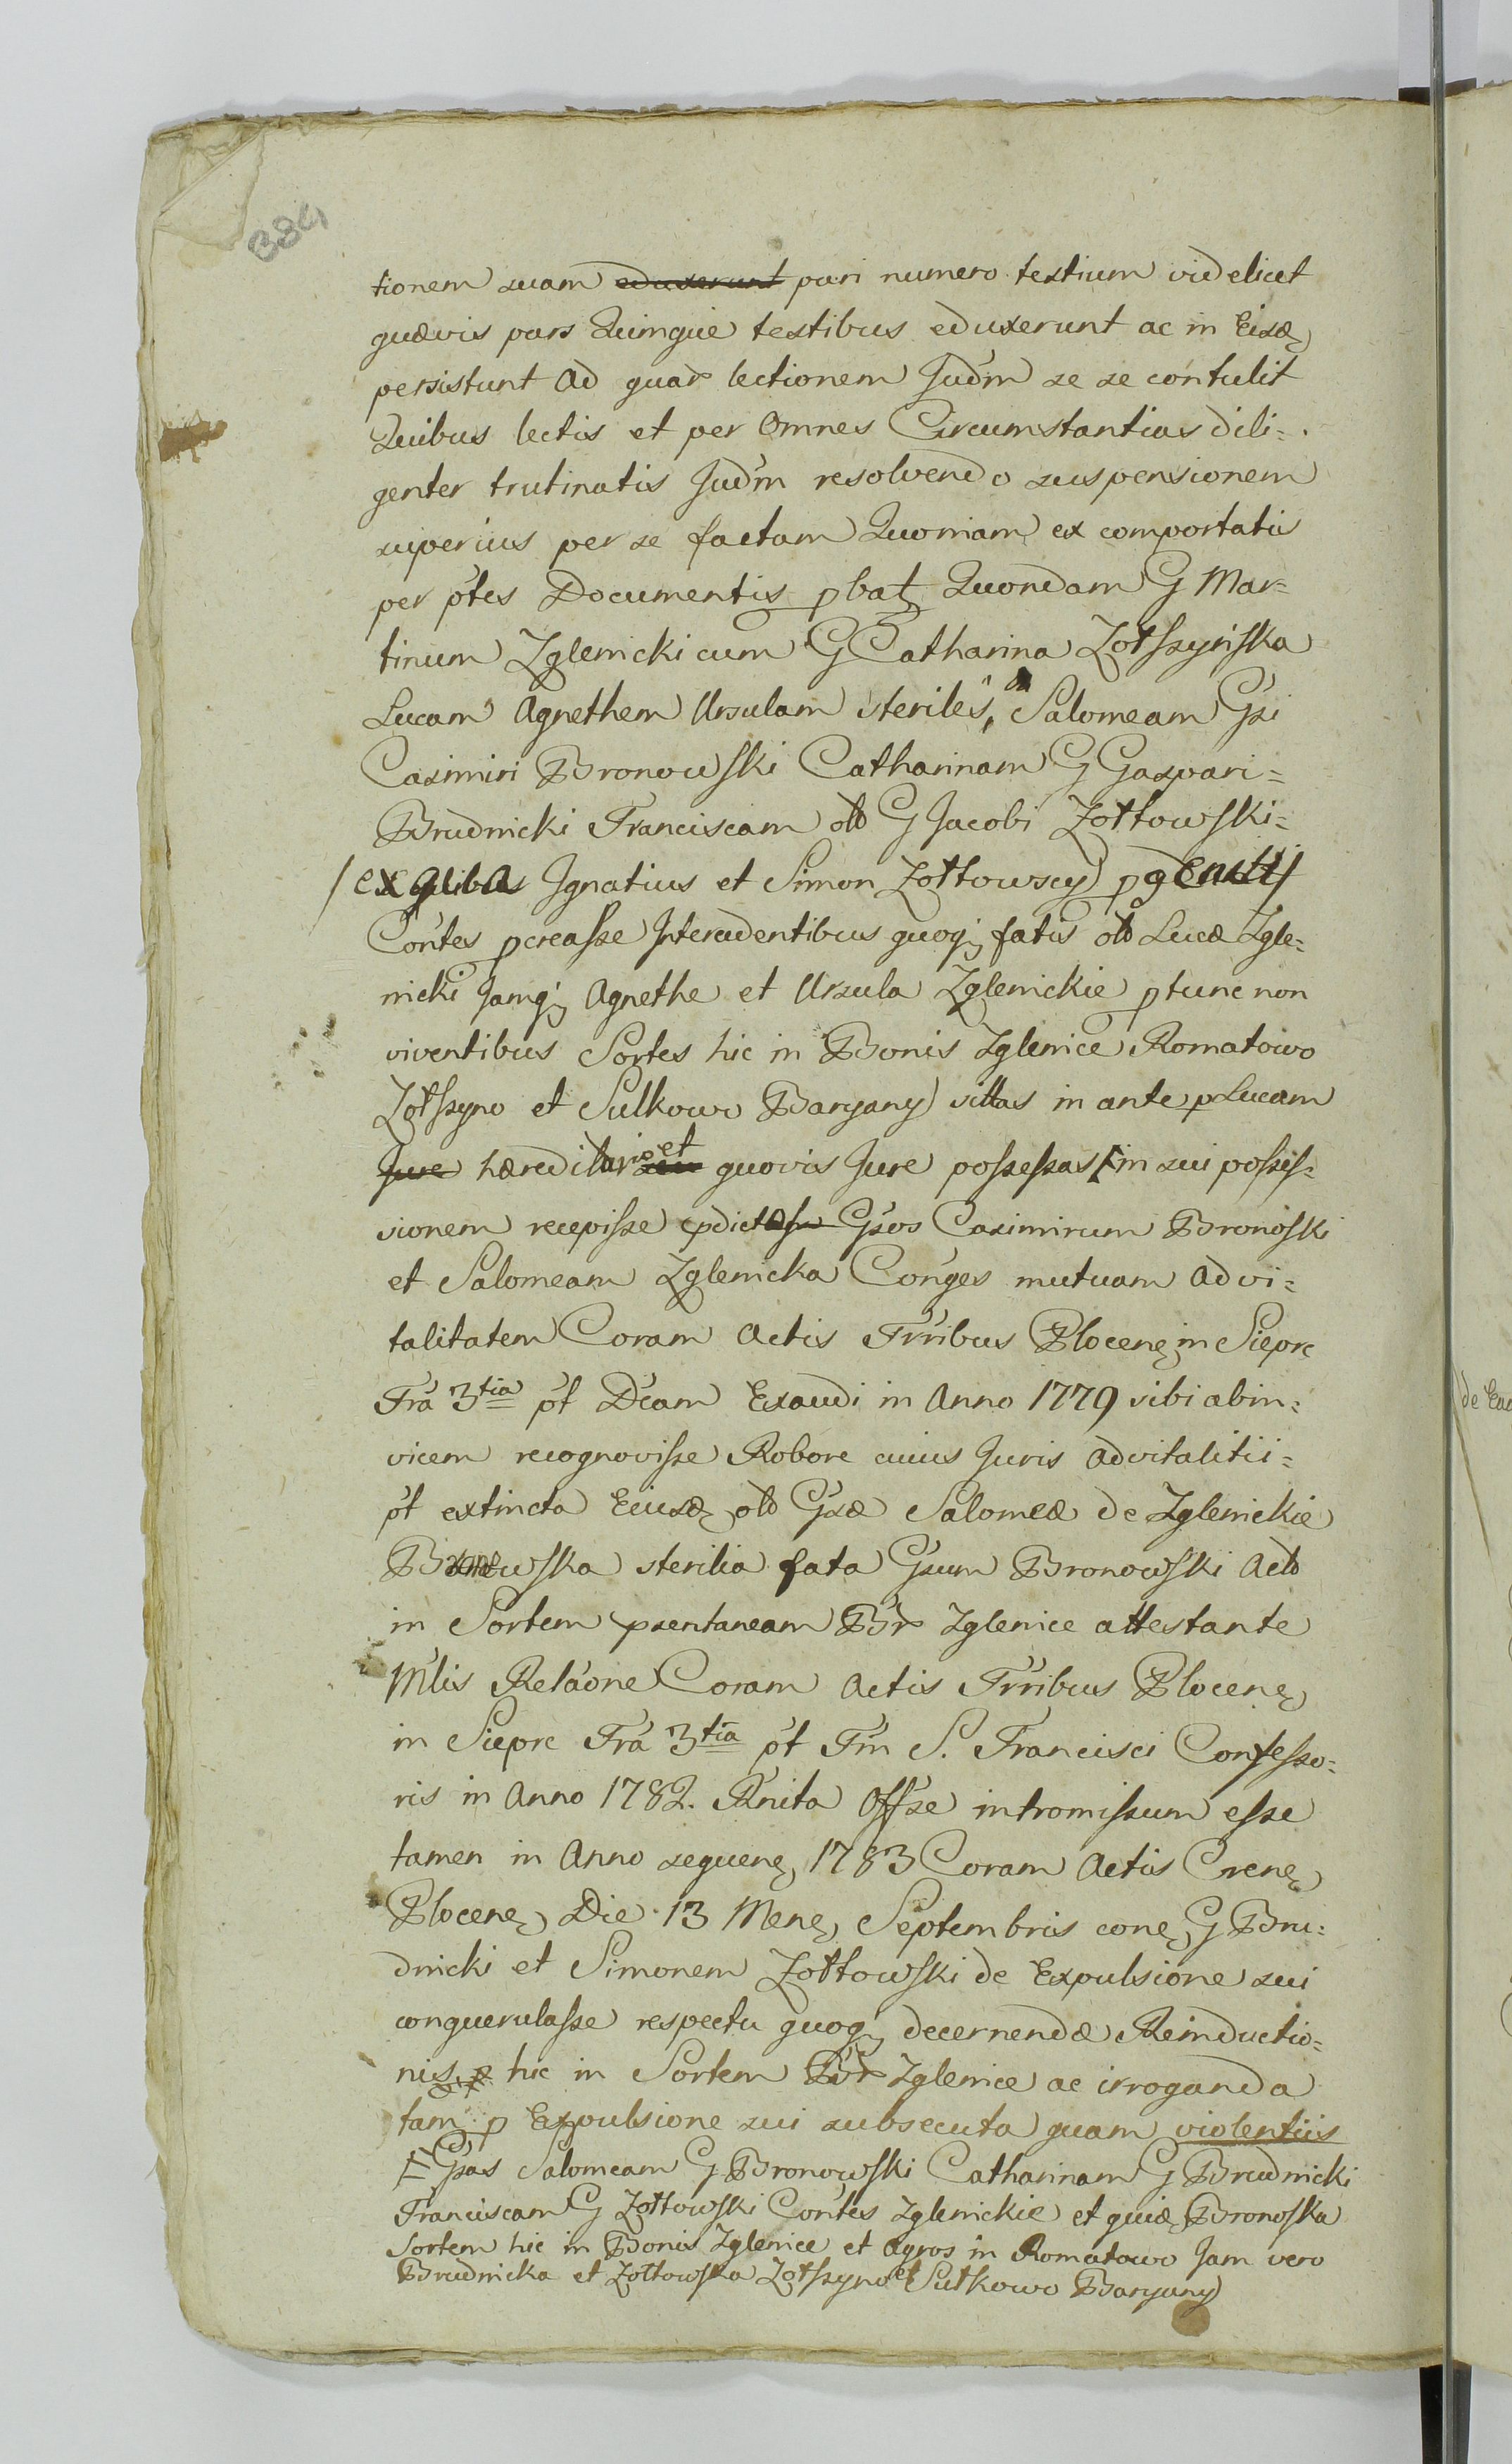 384
tionem suam eduxerunt pari numero testium videlicet
quævis pars Quinque testibus eduxerunt ac in Eisd
persistunt ad quar lectionem Judm se se contulit
Quibus lectis et per Omnes Circumstantias dili=
genter trutinatis Judm resolvendo suspensionem
superius per se factam Quoniam ex comportatis
per ptes Documentis pbat Quondam G Mar=
tinum Zglenicki cum G Catharina Zołszyńska
Lucam Agnethem Ursulam steriles, Salomeam Gsi
Casimiri Bronowski Catharinam G Gaspari=
Brudnicki Franciscam olb G Jacobi Żołtowski=
/ex quibus Ignatius et Simon Żołtowscy pgeniti/
Contes pcreasse Intercedentibus quoq fatis olb Lucæ Zgle=
nicki Jamq Agnethe et Ursula Zglenickie ptunc non
viventibus Sortes hic in Bonis Zglenice Romatowo
Zołszyno et Sulkowo Baryany sittas in ante p Lucam
Jure hæreditario et quovis Jure possessas in sui posses=
sionem recepisse pdictos Gsos Casimirum Bronoski
et Salomeam Zglenicka Conges mutuam advi=
talitatem Coram Actis Trribus Plocen in Sieprc
Fra 3tia pt Dcam Exaudi in Anno 1779 sibi abin=
vicem recognovisse Robore cuius Juris advitalitii=
pt extincta Eiusd olb Gsæ Salomeæ de Zglenickie
Bronowska sterilia fata Gsum Bronowski Actb
in Sortem psentaneam Br Zglenice attestante
Mlis Relaone Coram Actis Trribus Plocen
in Sieprc Fra 3tia pt Fm S. Francisci Confesso=
ris in Anno 1782. Rnita Offse intromissum esse
tamen in Anno sequen 1783 Coram Actis Cren
Plocen Die 13 Men Septembris con G Bru=
dnicki et Simonem Żołtowski de Expulsione sui
conquerulasse respectu quoq decernendæ Reinductio=
nis hic in Sortem Br Zglenice ac irroganda
tam p Expulsione sui subsecuta quam violentiis
Gsas Salomeam G Bronowski Catharinam G Brudnicki
Franciscam G Żołtowski Contes Zglenickie et quid Bronoska
Sortem hic in Bonis Zglenice et agros in Romatowo Jam vero
Brudnicka et Żołtowska Zołszyno et Sułkowo Baryany